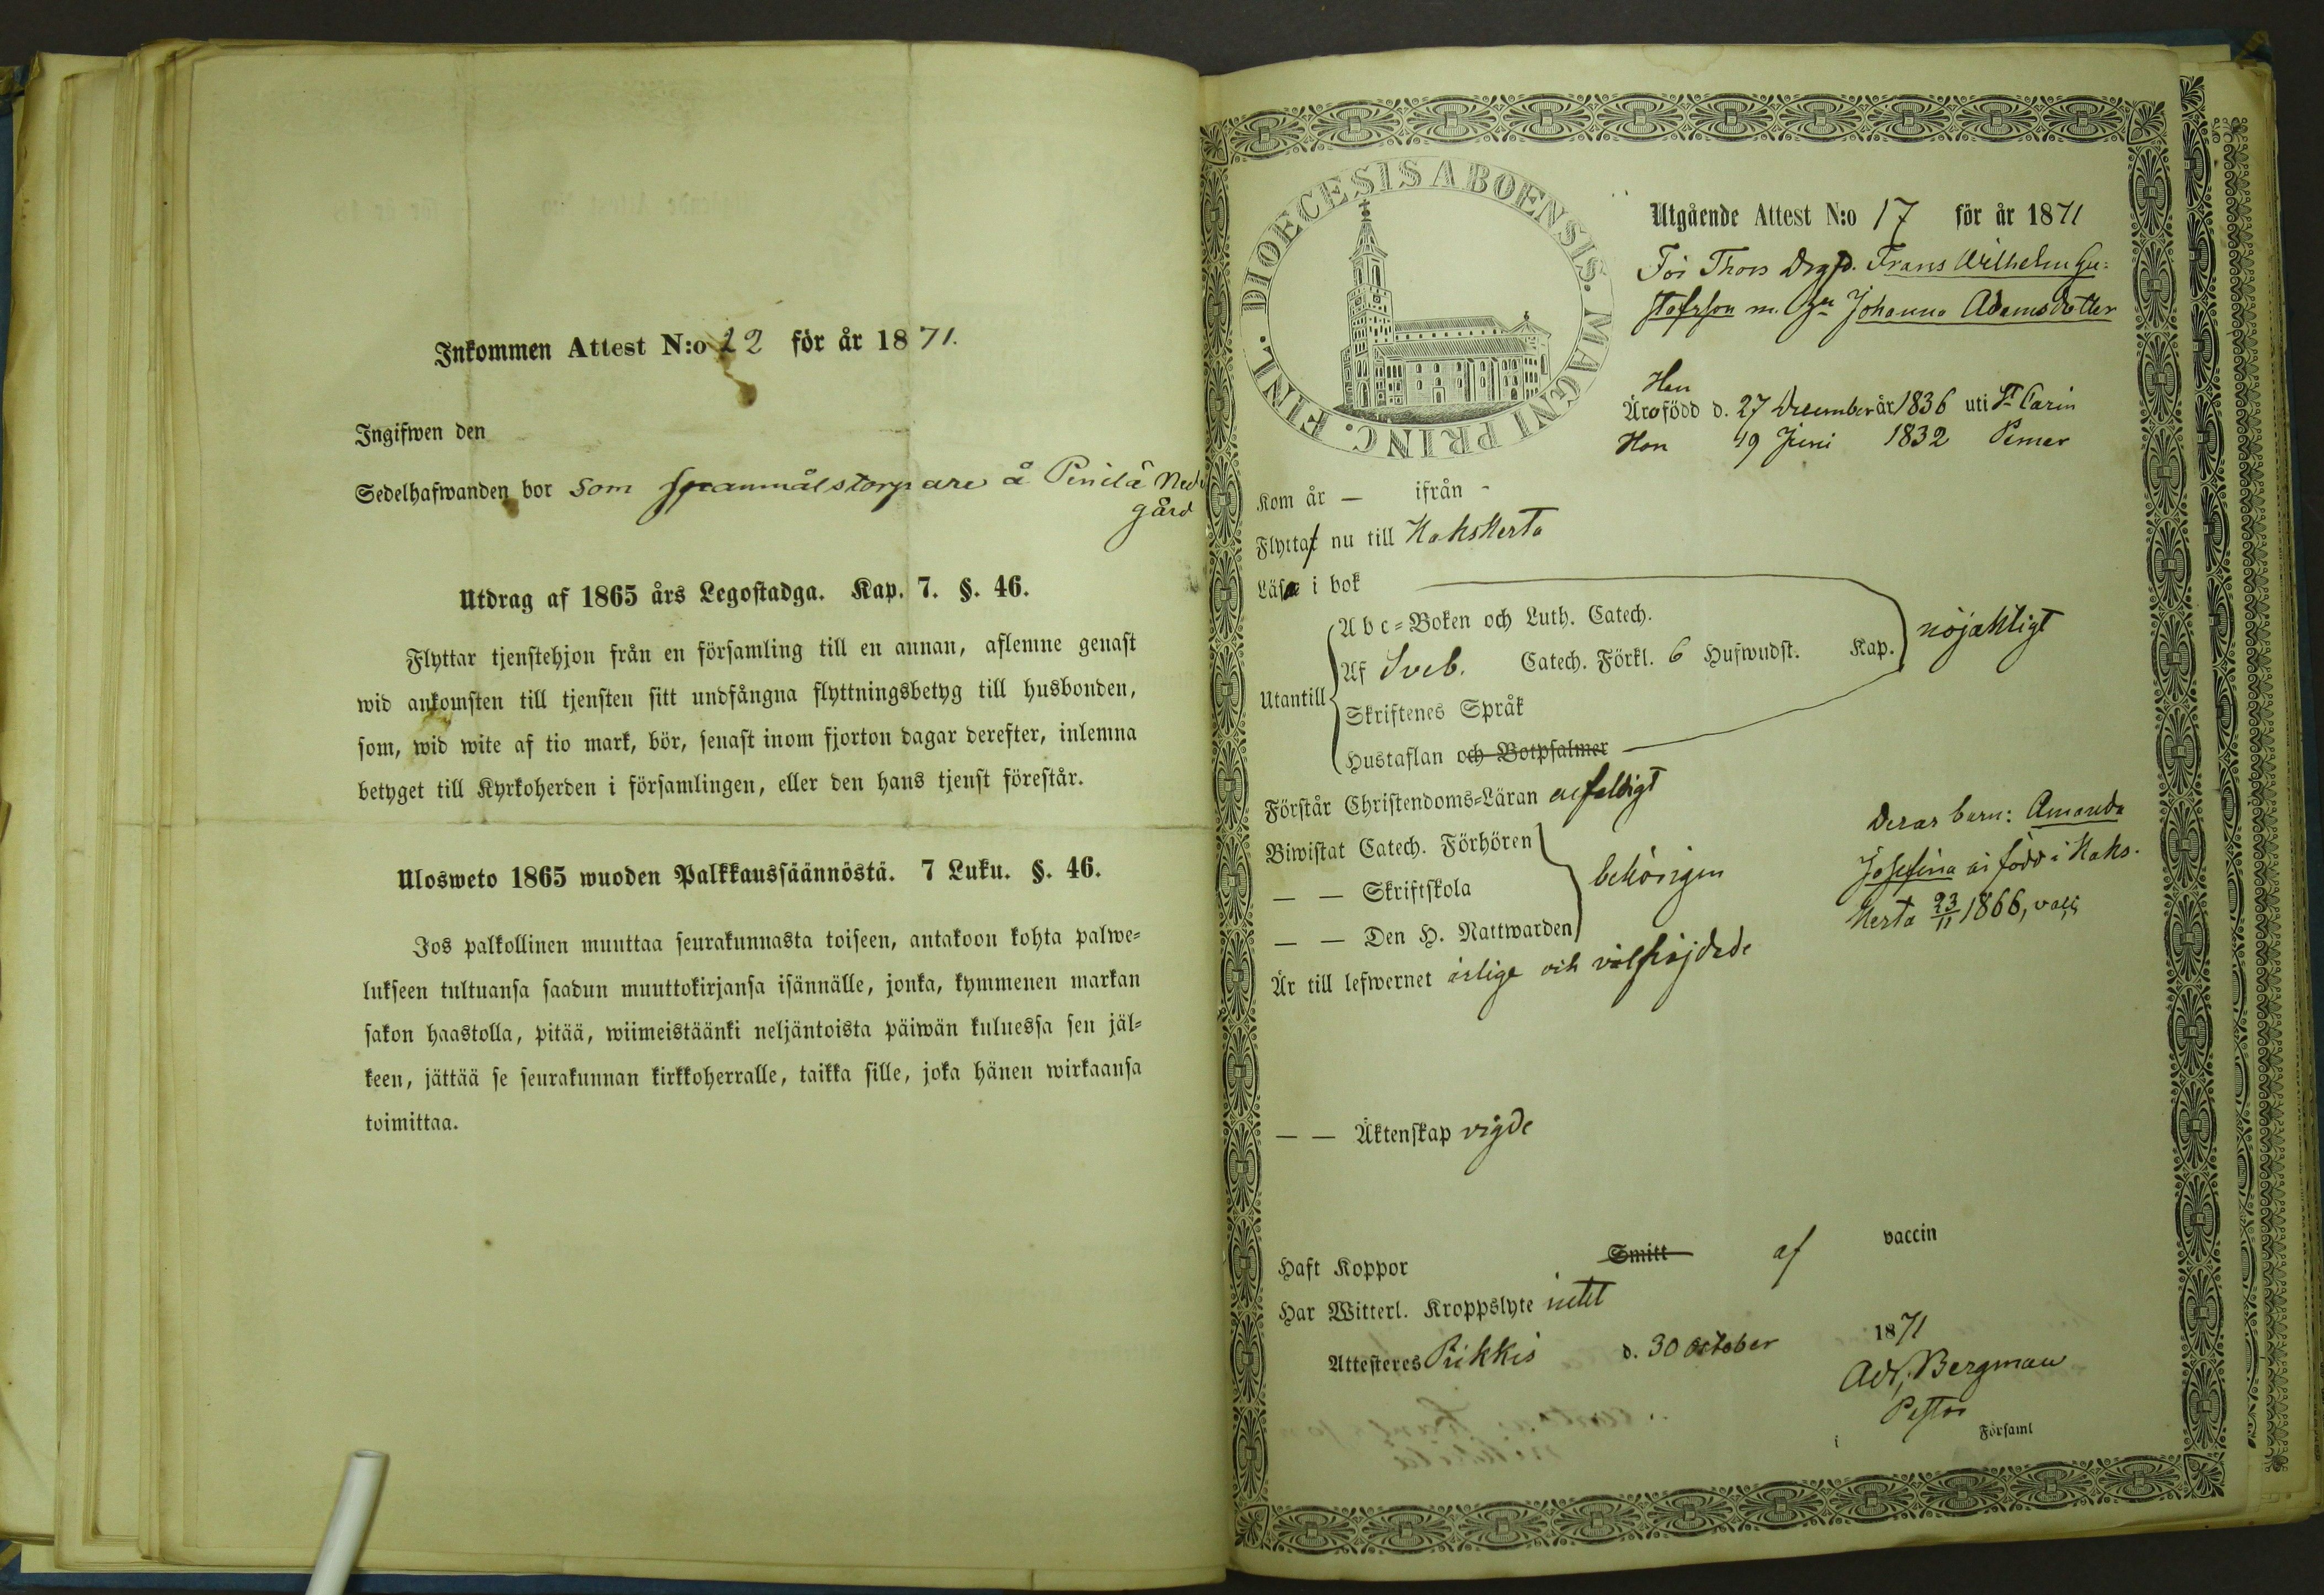 Inkommen Attest N:o 22 för år 1871.
Ingifwen den
Sedelhafwanden bor som spanmålstorpare å Pinilä Ned
gård
Utdrag af 1865 års Legostadga. Kap. 7. §. 46.
Flyttar tjenstehjon från en församling till en annan, aflemne genast
wid ankomsten till tjensten sitt undfångna flyttningsbetyg till husbonden,
som, wid wite af tio mark, bör, senast inom fjorton dagar derefter, inlemna
betyget till Kyrkoherden i församlingen, eller den hans tjenst förestår.
Ulosweto 1865 wuoden Palkkaussäännöstä. 7 Luku. §. 46.
Jos palkollinen muuttaa seurakunnasta toiseen, antakoon kohta palwe-
lukseen tultuansa saadun muuttokirjansa isännälle, jonka, kymmenen markan
sakon haastolla, pitää, wiimeistäänki neljäntoista päiwän kuluessa sen jäl-
keen, jättää se seurakunnan kirkkoherralle, taikka sille, joka hänen wirkaansa
toimittaa.
DIOECESIS ABOENSIS. MAGNI PRINC. FINL.
Utgående Attest N:o 17 för år 1871
För Thors Drgd. Frans Wilhelm Gu-
stafsson m. Johanna Adamsdotter
Han
Äro född d. 27 December år 1836 uti St Carin
Hon 19 Juni 1832 Pemar
Kom år — ifrån -
Flytta nu till Kakskerta
Läsa i bok
A b c-Boken och Luth. Catech.
Utantill Af Sveb. Catech. Förkl. 6 Hufwudst. Kap. nöjaktigt
Skriftenes Språk
Hustaflan och Botpsalmer
Förstår Christendoms-Läran enfaldigt
Biwistat Catech. Förhören
— — Skriftskola behörigen
— — Den H. Nattwarden
Är till lefwernet ärlige och välfräjdade
Deras barn: Amanda
Josefina är född i Kaks-
kerta 23/11 1866, vacc.
— — Äktenskap vigde
Haft Koppor Smitt af vaccin
Har Witterl. Kroppslyte intet
Attesteres Piikkis d. 30 October 1871
Ad. Bergman
Pastor
i Församl